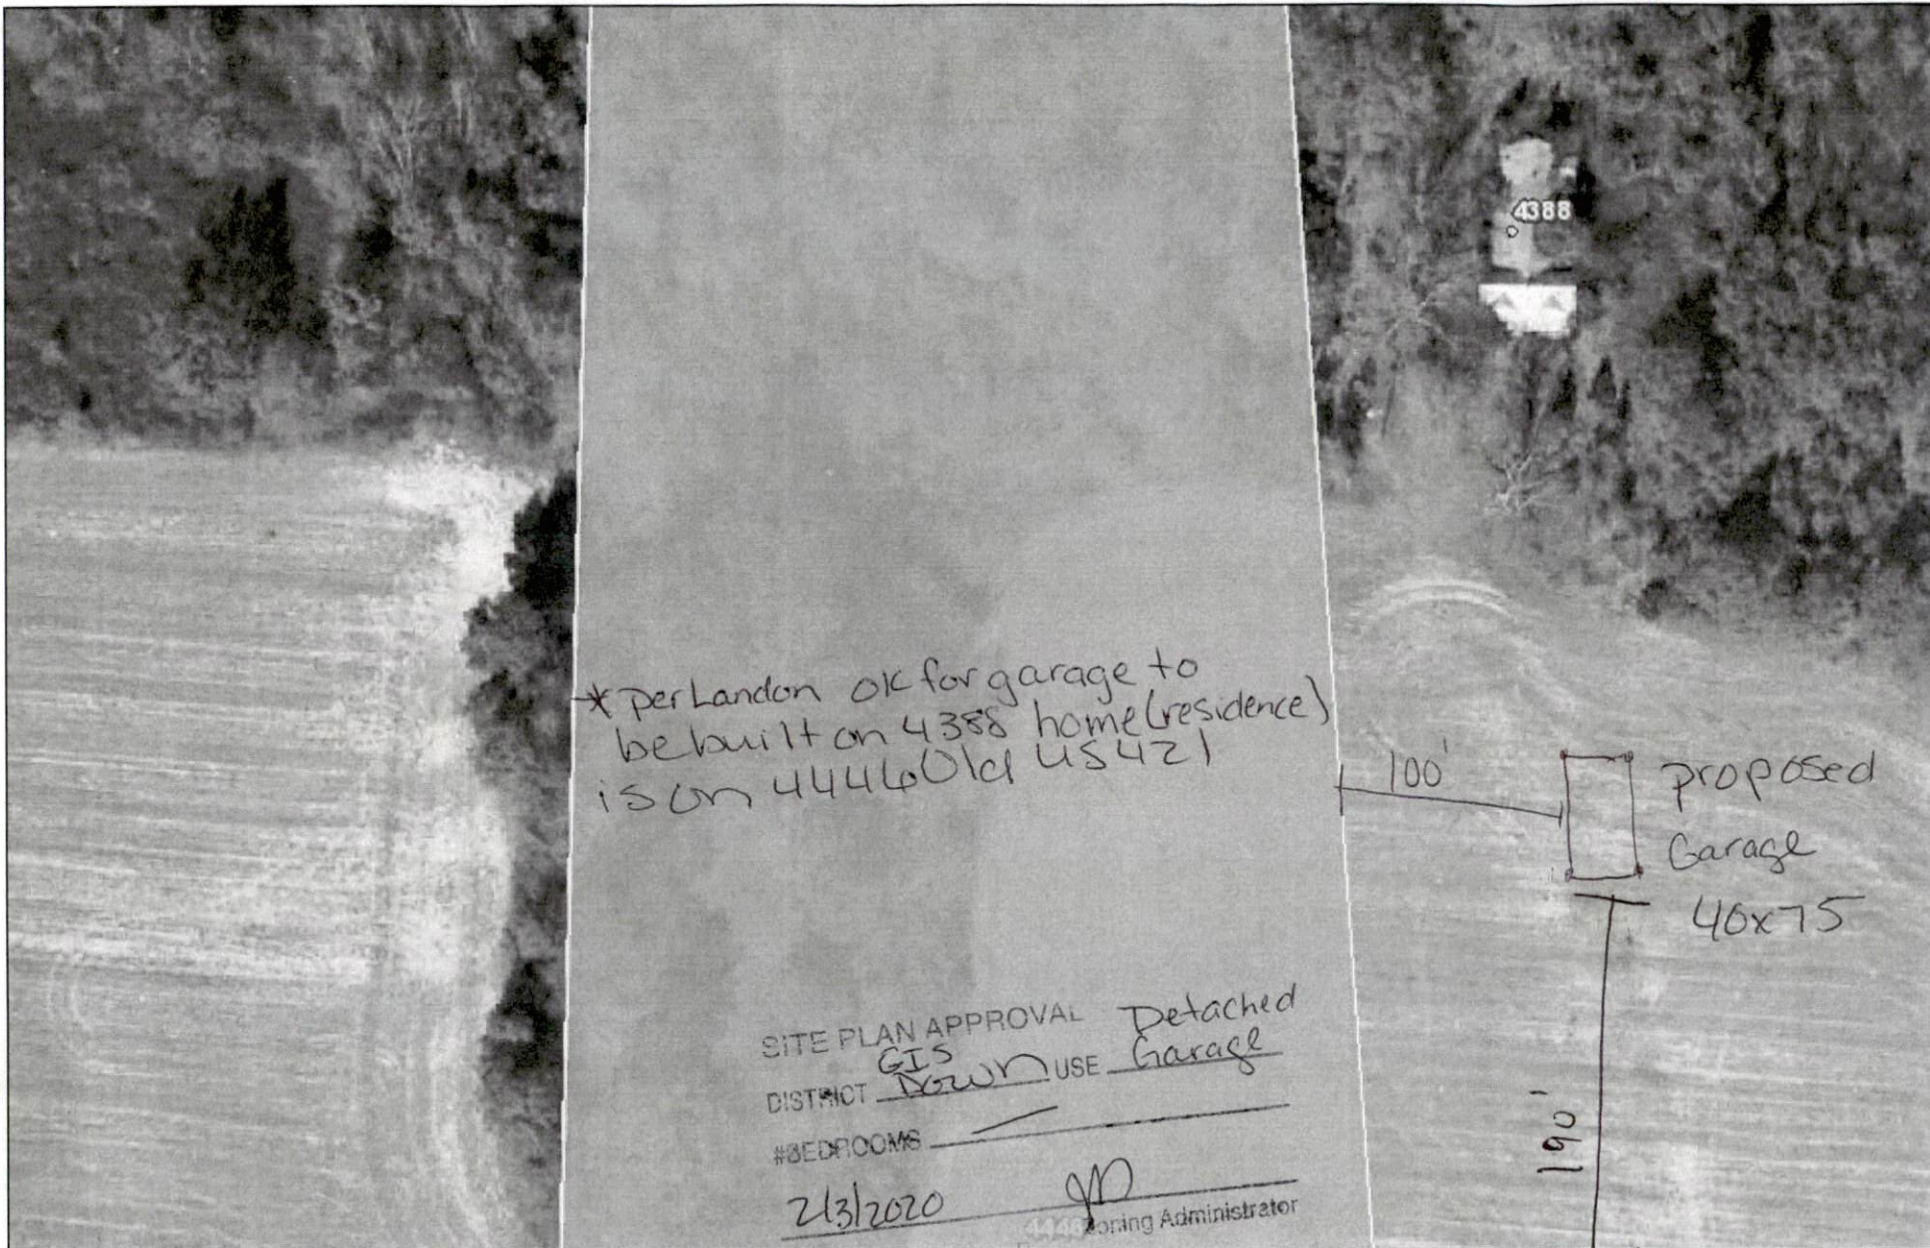 4388
* per Landon ok for garage to
be built on 4388 home (residence)
is on 4446 Old US 421
100'
proposed
Garage
40x75
190'
SITE PLAN APPROVAL Detached
GIS
DISTRICT Down USE Garage
#BEDROOMS —
2/3/2020
Zoning Administrator